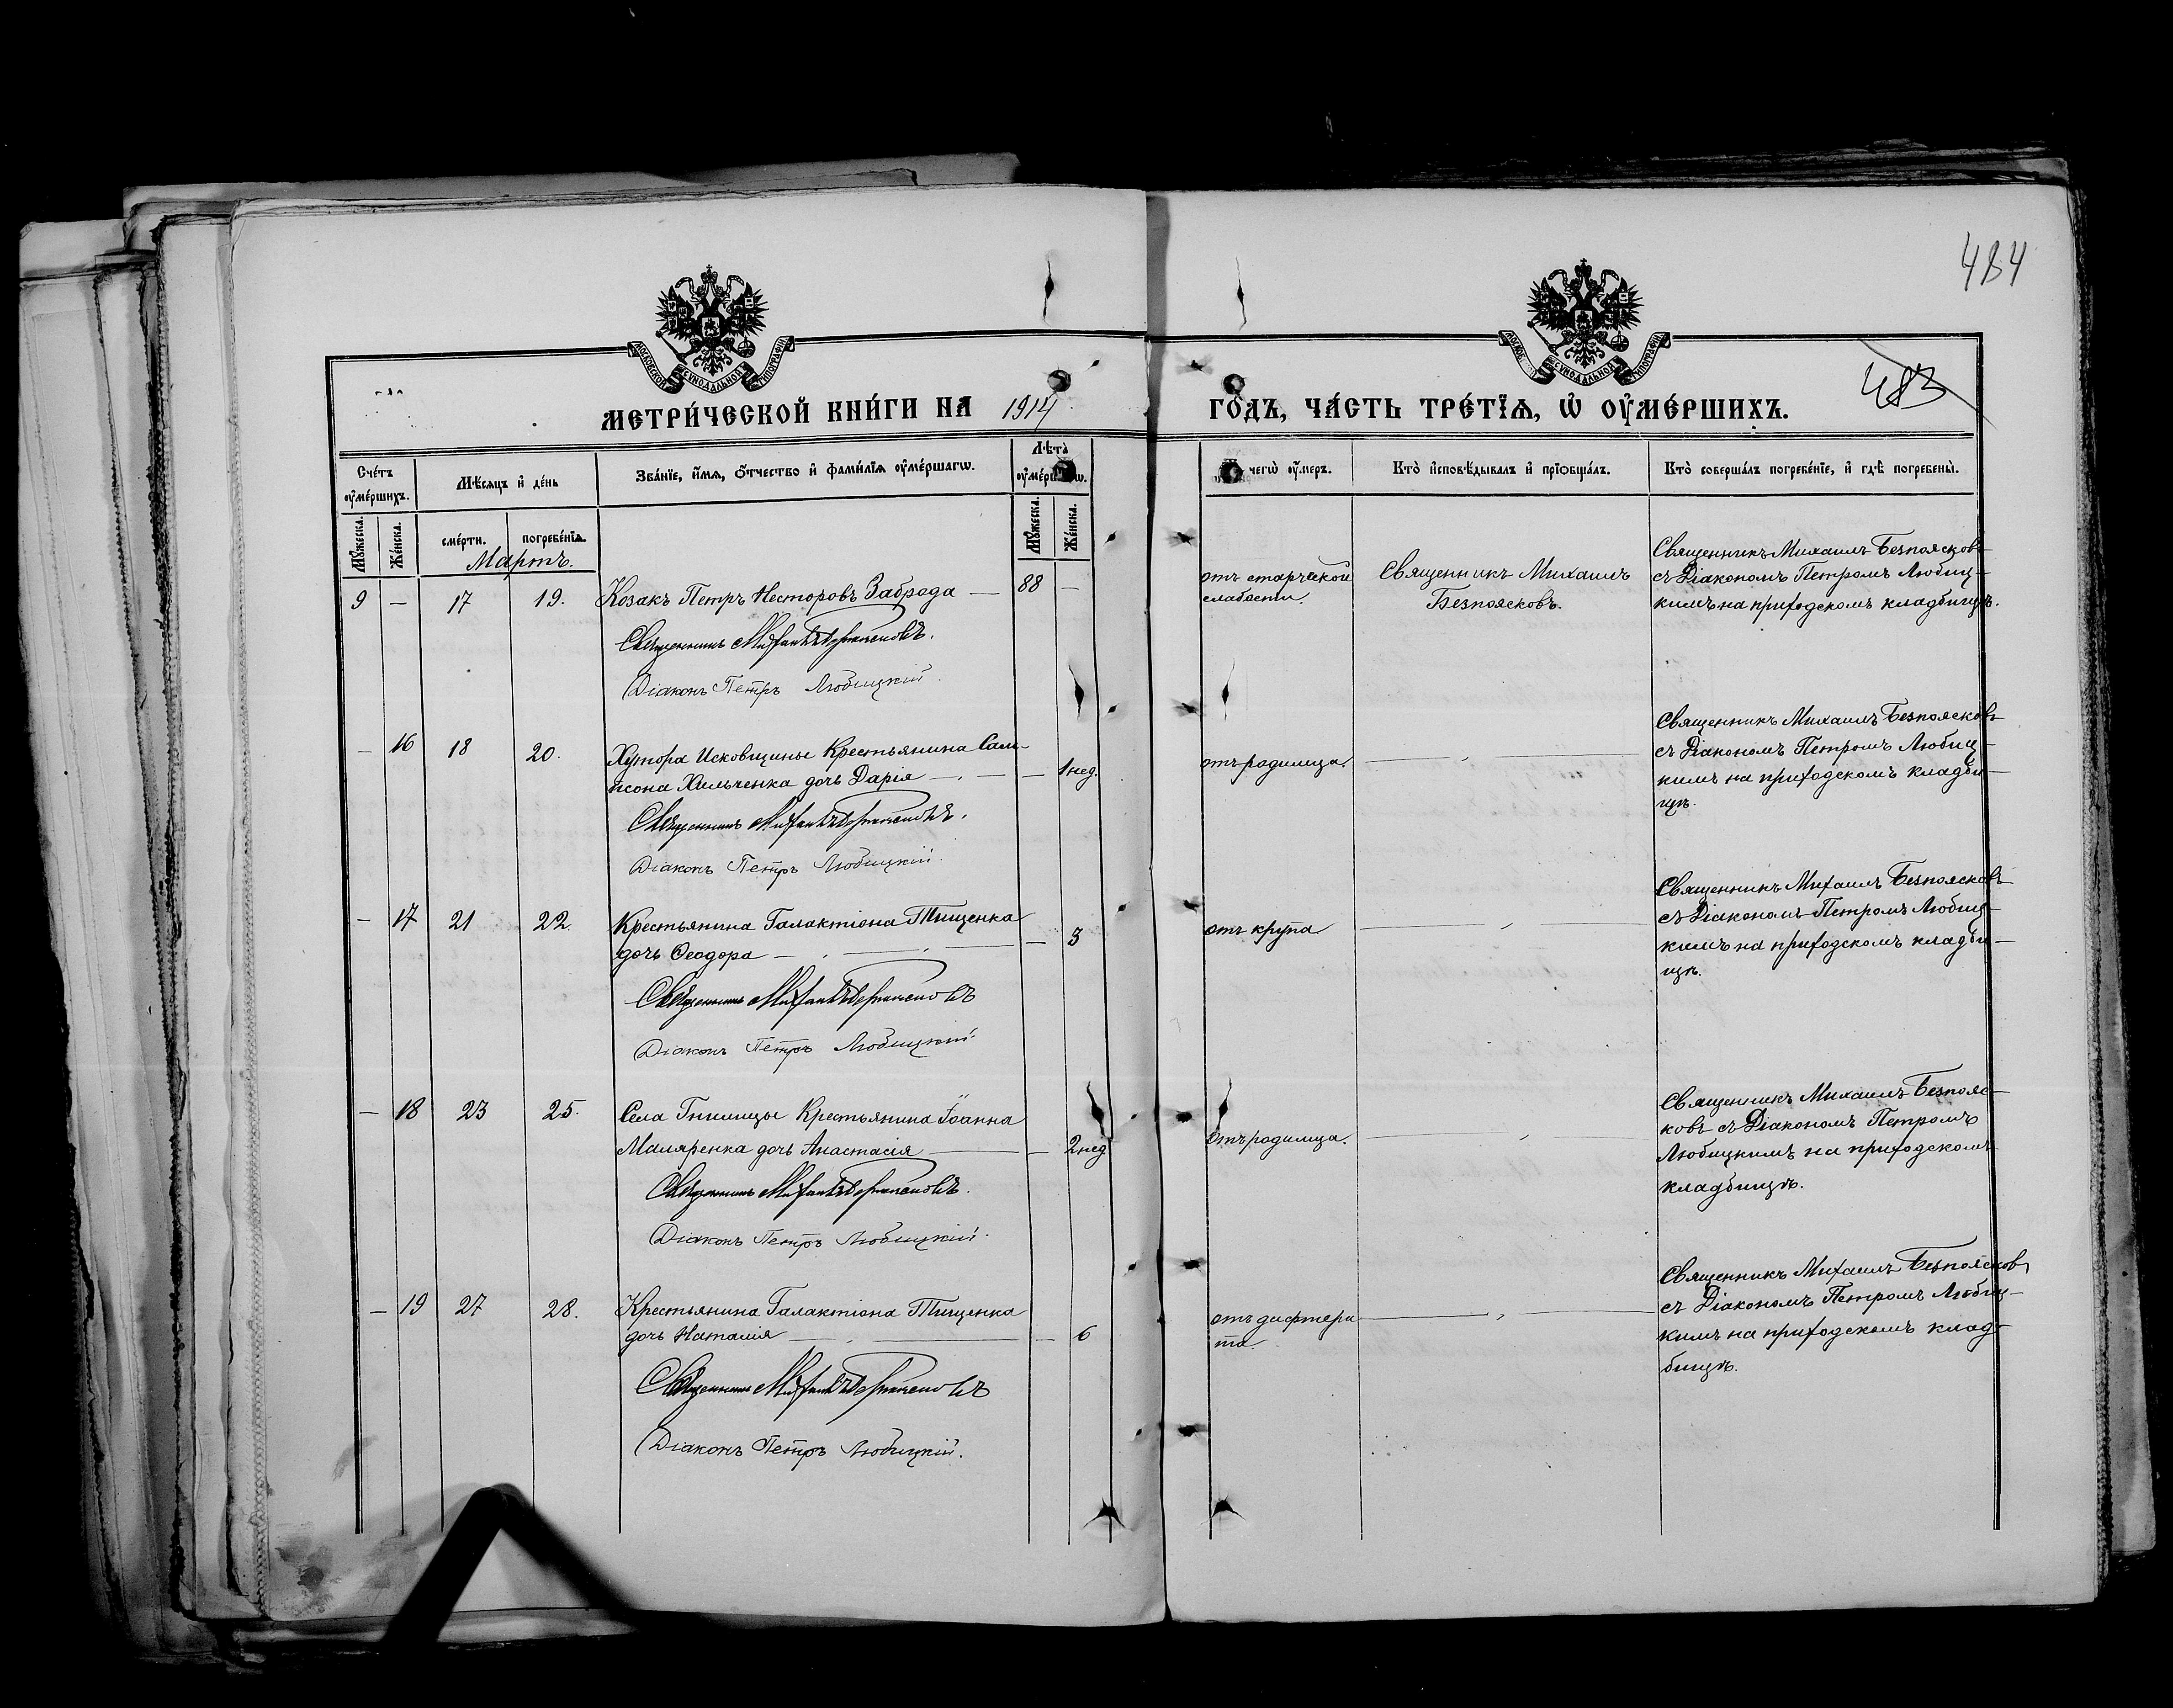 484
483
МОСКОВСКОЙ СѴНОДАЛЬНОЙ ТИПОГРАФІИ
МОСКОВ. СѴНОДАЛЬНОЙ ТИПОГРАФІИ
МЕТРИ́ЧЕСКОЙ КНИ́ГИ НА 1914 ГО́ДЪ, ЧА́СТЬ ТРЕ́ТІѦ, Ѡ҆ ОУ҆МЕ́РШИХЪ.
Сче́тъ оу҆ме́ршихъ.
Мѣ́сяцъ и҆ де́нь
Зва́нїе, и҆́мѧ, ѻ҆́тчество и҆ фами́лїѧ оу҆ме́ршагѡ.
Лѣ́та
чегѡ̀ оу҆́меръ.
Кто̀ и҆сповѣ́дывалъ и҆ прїѻбща́лъ.
Кто̀ соверша́лъ погребе́нїе, и҆ гдѣ̀ погребены̀.
Мꙋ́жеска.
Же́нска.
сме́рти.
погребе́нїѧ.
Мꙋ́жеска.
Же́нска.
Мартъ.
9 — 17 19. Козакъ Петръ Несторовъ Заброда — 88 —
Священникъ Михаилъ Безпоясковъ.
Діаконъ Петръ Любицкій.
отъ старческой
слабости.
Священникъ Михаилъ
Безпоясковъ.
Священникъ Михаилъ Безпоясковъ
съ Діакономъ Петромъ Любиц-
кимъ на приходскомъ кладбищѣ.
— 16 18 20. Хутора Исковщины Крестьянина Сам-
псона Хильченка дочь Дарія — — 1 нед.
Священникъ Михаилъ Безпоясковъ.
Діаконъ Петръ Любицкій.
отъ родимца.
Священникъ Михаилъ Безпоясковъ
съ Діакономъ Петромъ Любиц-
кимъ на приходскомъ кладби-
щѣ.
— 17 21 22. Крестьянина Галактіона Тищенка
дочь Ѳеодора — — 3
Священникъ Михаилъ Безпоясковъ
Діаконъ Петръ Любицкій.
отъ крупа
Священникъ Михаилъ Безпоясковъ
съ Діакономъ Петромъ Любиц-
кимъ на приходскомъ кладби-
щѣ.
— 18 23 25. Села Гнилицы Крестьянина Іоанна
Маляренка дочь Анастасія — — 2 нед
Священникъ Михаилъ Безпоясковъ.
Діаконъ Петръ Любицкій.
отъ родимца.
Священникъ Михаилъ Безпояс-
ковъ съ Діакономъ Петромъ
Любицкимъ на приходскомъ
кладбищѣ.
— 19 27 28. Крестьянина Галактіона Тищенка
дочь Наталія — — 6
Священникъ Михаилъ Безпоясковъ
Діаконъ Петръ Любицкій.
отъ дифтери
та.
Священникъ Михаилъ Безпоясков
съ Діакономъ Петромъ Любиц-
кимъ на приходскомъ клад-
бищѣ.